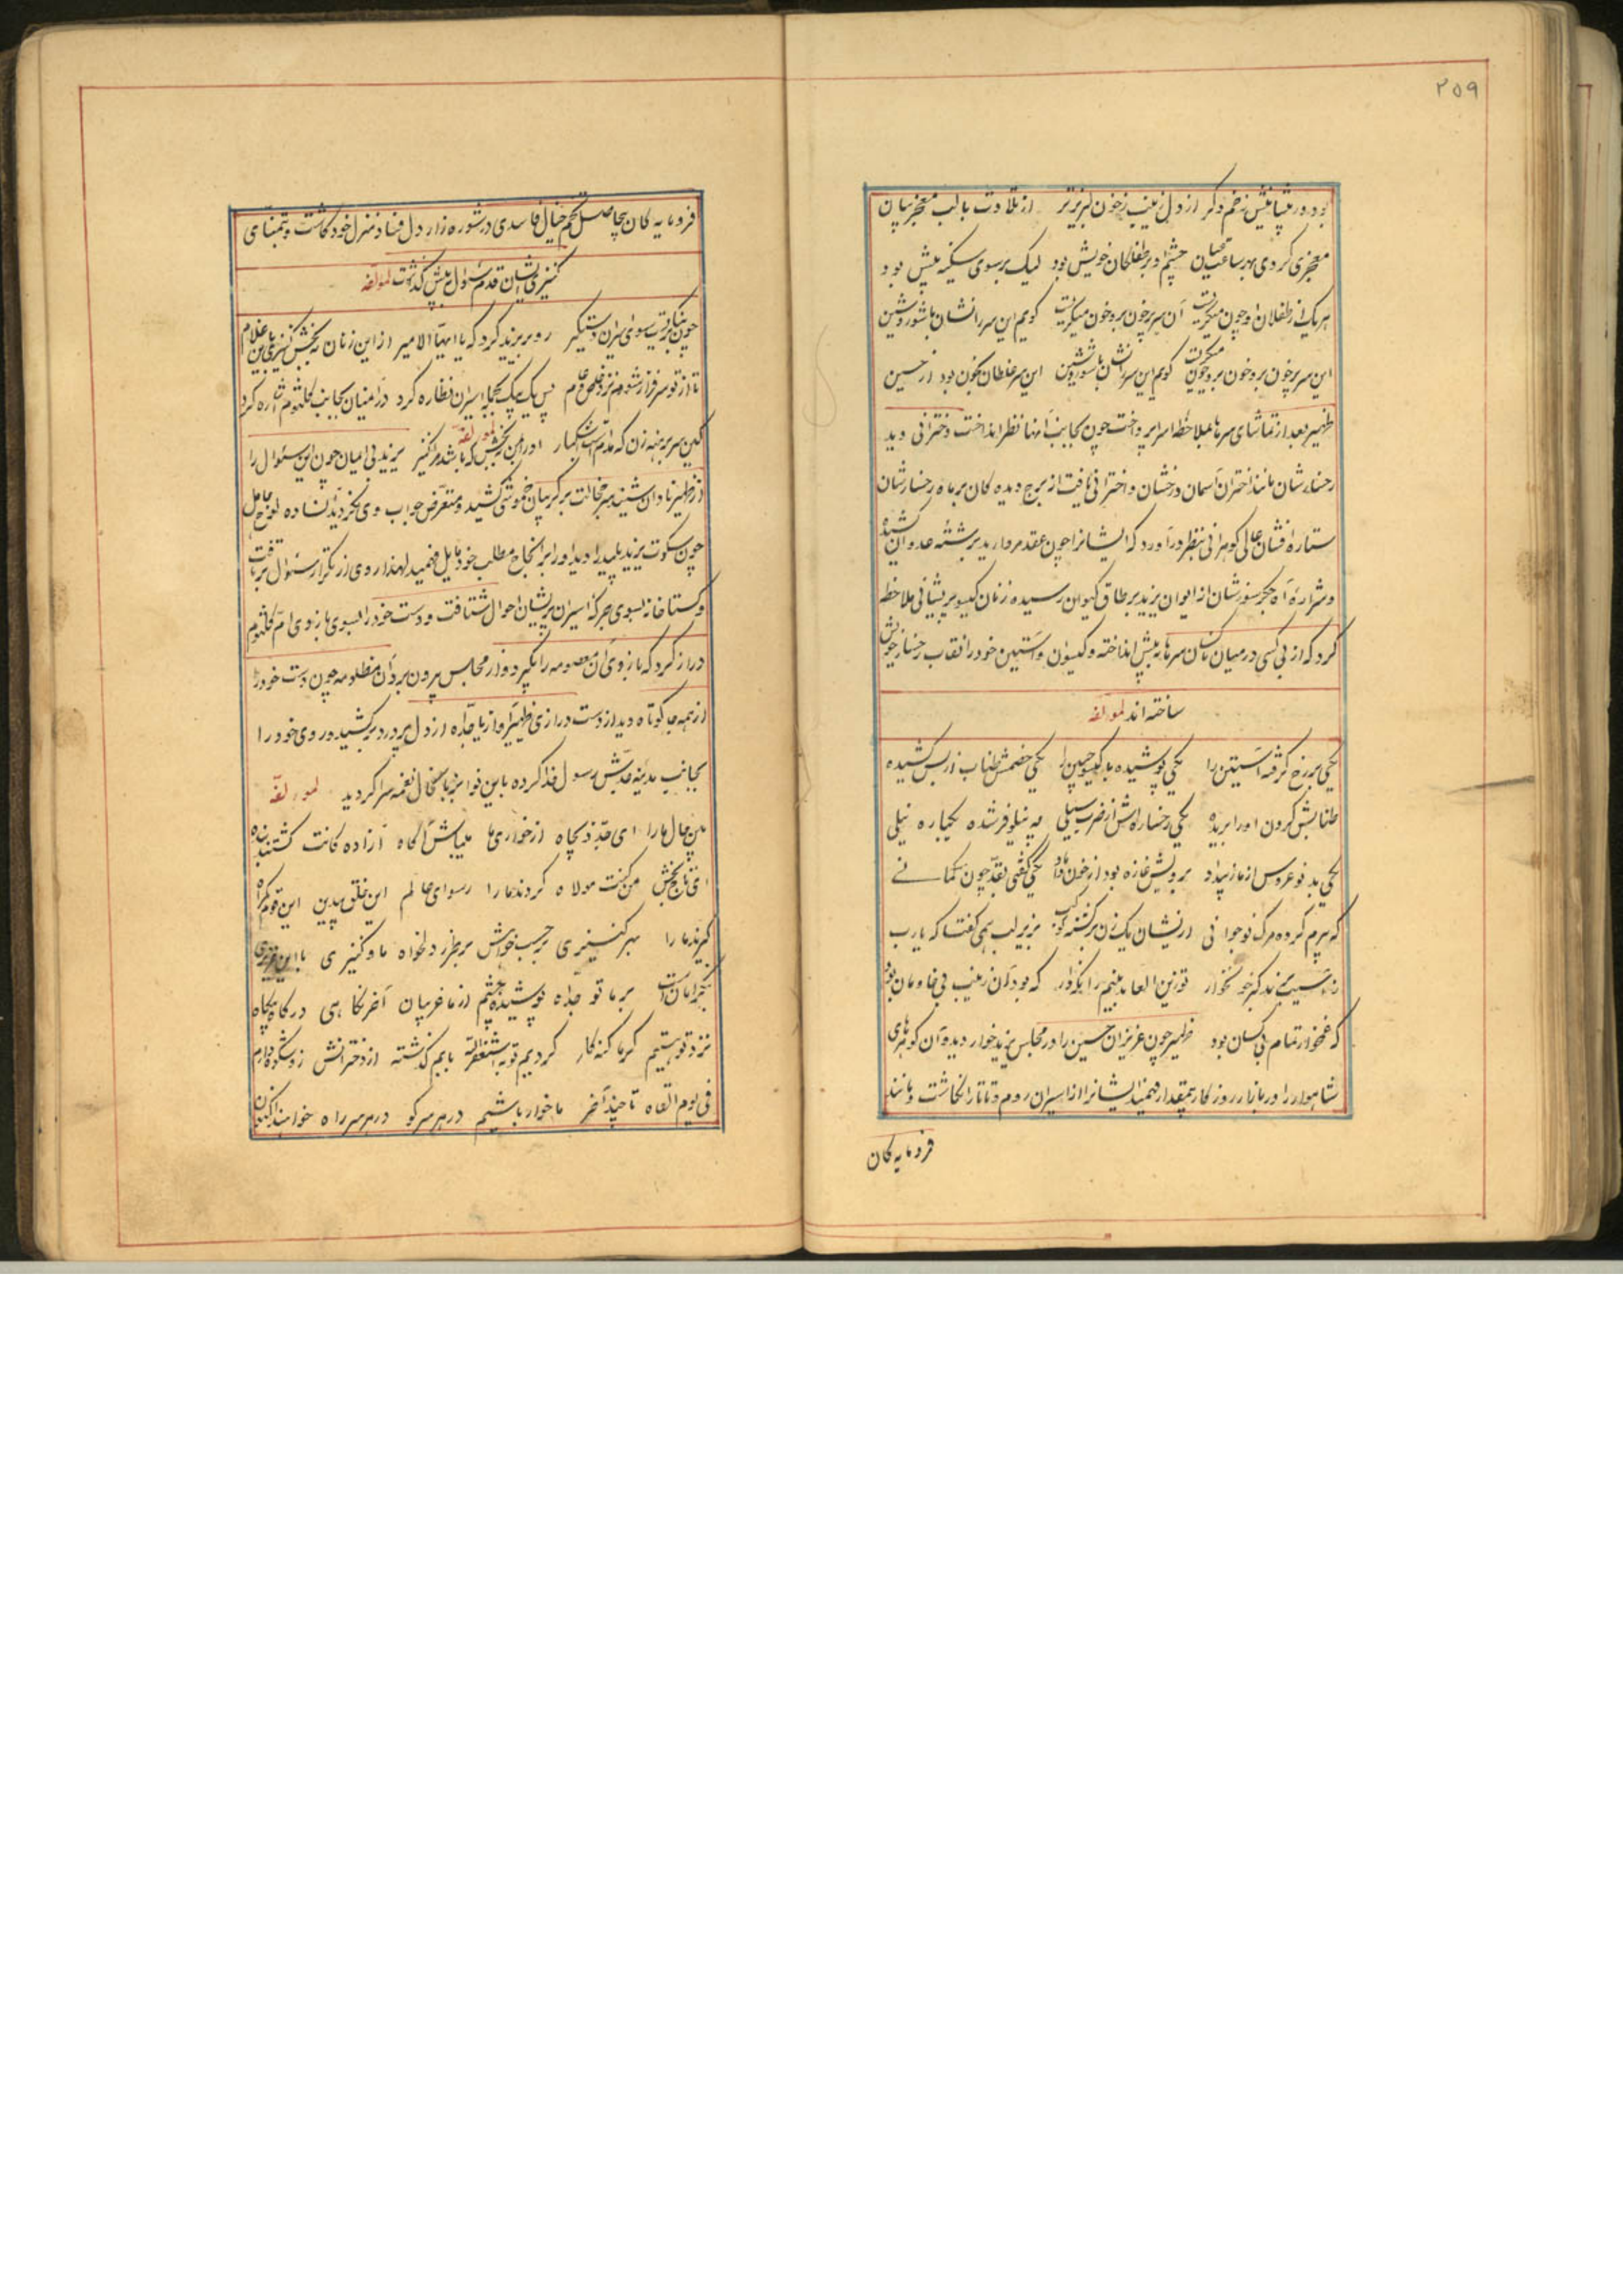 ۲۵۹
بود در پیشانیش زخم دگر از دل زینب ز خون لبریزتر از تلاوت با لب معجز بیان
معجزی کردی بهر ساعت عیان چشم او بر طفلکان خویش بود لیک بر سوی سکینه بیش بود
هر یک از طفلان او چون میگریست آن سر پر خون برو خون میگریست گویم این سر را نشان با شور و شین
این سر پر خون برو خون میگریست گویم این سر را نشان با شور و شین این سر غلطان بخون بود از حسین
ظهیر بعد از تماشای سرها بملاحظه اسرا پرداخت چون بجانب آنها نظر انداخت دخترانی دید
رخسارشان مانند اختران آسمان درخشان و اخترانی یافت از برج دیده کان بر ماه رخسارشان
ستاره افشان عالی گوهرانی بنظر درآورد که ایشانرا چون عقد مروارید برشته عدوان کشیده
و شراره آه جگرسوزشان از ایوان یزید بر طاق کیوان رسیده زنان گیسو پریشانی ملاحظه
کرد که از بی کسی در میان ناکسان سرها به پیش انداخته و گیسوان و آستین خود را نقاب رخسار خویش
ساخته اند لمؤلفه
یکی بر رخ گرفته آستین را یکی پوشیده با گیسو جبین را یکی خصمش طناب از پس کشیده
طنابش گردن او را بریده یکی رخساره اش از ضرب سیلی چه نیلوفر شده یکباره نیلی
یکی بد نو عروس از ماز بیداد برویش غازه بود از خون داماد یکی گفتی بقد چون کمانی
که پیرم کرده مرگ نوجوانی از یشان یک زن برگشته کوکب بزیر لب همی گفتا که یارب
تو زین العابدینم را نگه دار که بود آن زینب بی خانومان بود
که غمخوار تمام بی کسان بود ظهیر چون عزیزان حسین را در مجلس یزید خوار دیده آن گوهرهای
شاهوار را در بازار روزگار بیمقدار فهمید ایشانرا از اسیران روم و تاتار انگاشت و مانند
فرومایه کان
فرومایه کان بیحاصل تخم خیال فاسدی در شوره زار دل فساد منزل خود کاشت و بتمنای
کنیزی ایشان قدم سؤال پیش گذاشت لمؤلفه
چون بنگریست سوی اسیران دستگیر رو بر یزید کرد که یا ایها الامیر از این زنان ببخش کنیزی باین غلام
تا از تو سرفراز شوم نزد خاص و عام پس یک بیک بجانب اسیران نظاره کرد در آنمیان بجانب کلثوم اشاره کرد
کاین سر برهنه زن که مدام است اشکبار او را بمن ببخش که باشد مرا کنیز لمؤلفه یزید بی ایمان چون این سئوال را
از ظهیر نادان شنید سر خجالت بر گریبان خموشی کشید و متعرض جواب وی نگردید آنساده لوح جاهل
چون سکوت یزید پلید را دید او را بر انجاح مطلب خود مایل فهمید لهذا روی از تکرار سئوال برتافت
و گستاخانه بسوی جرگه اسیران پریشان احوال شتافت و دست خود را بسوی بازوی ام کلثوم
دراز کرد که بازوی آن معصومه را بگیرد و از مجلس بیرون برد آن مظلومه چون دست خود را
از همه جا کوتاه دید از دست درازی ظهیر آواز یا جداه از دل پر درد برکشید و روی خود را
بجانب مدینه جدش رسول خدا کرده باین نوا بزبان حال نغمه سرا گردید لمؤلفه
بین حال ما را ای جد ذیجاه از خواری ما میباش آگاه آزاده گانت گشتند بنده
ای تاج بخش من کنت مولاه کردند ما را رسوای عالم این خلق بیدین این قوم گمراه
گیرند ما را بهر کنیزی بر حسب خواهش بر طرز دلخواه ما و کنیزی با این عزیزی
بر ما تو جداه پوشیده چشم از ما غریبان آخر نگاهی در گاه و بیگاه
نزد تو هستیم گر ما گنه کار کردیم توبه استغفرالله بابم گذشته از دخترانش زو شکوه دارم
فی یوم القاه تا چند آخر ما خوار باشیم در هر سر کو در هر سر راه خواهند اکنون